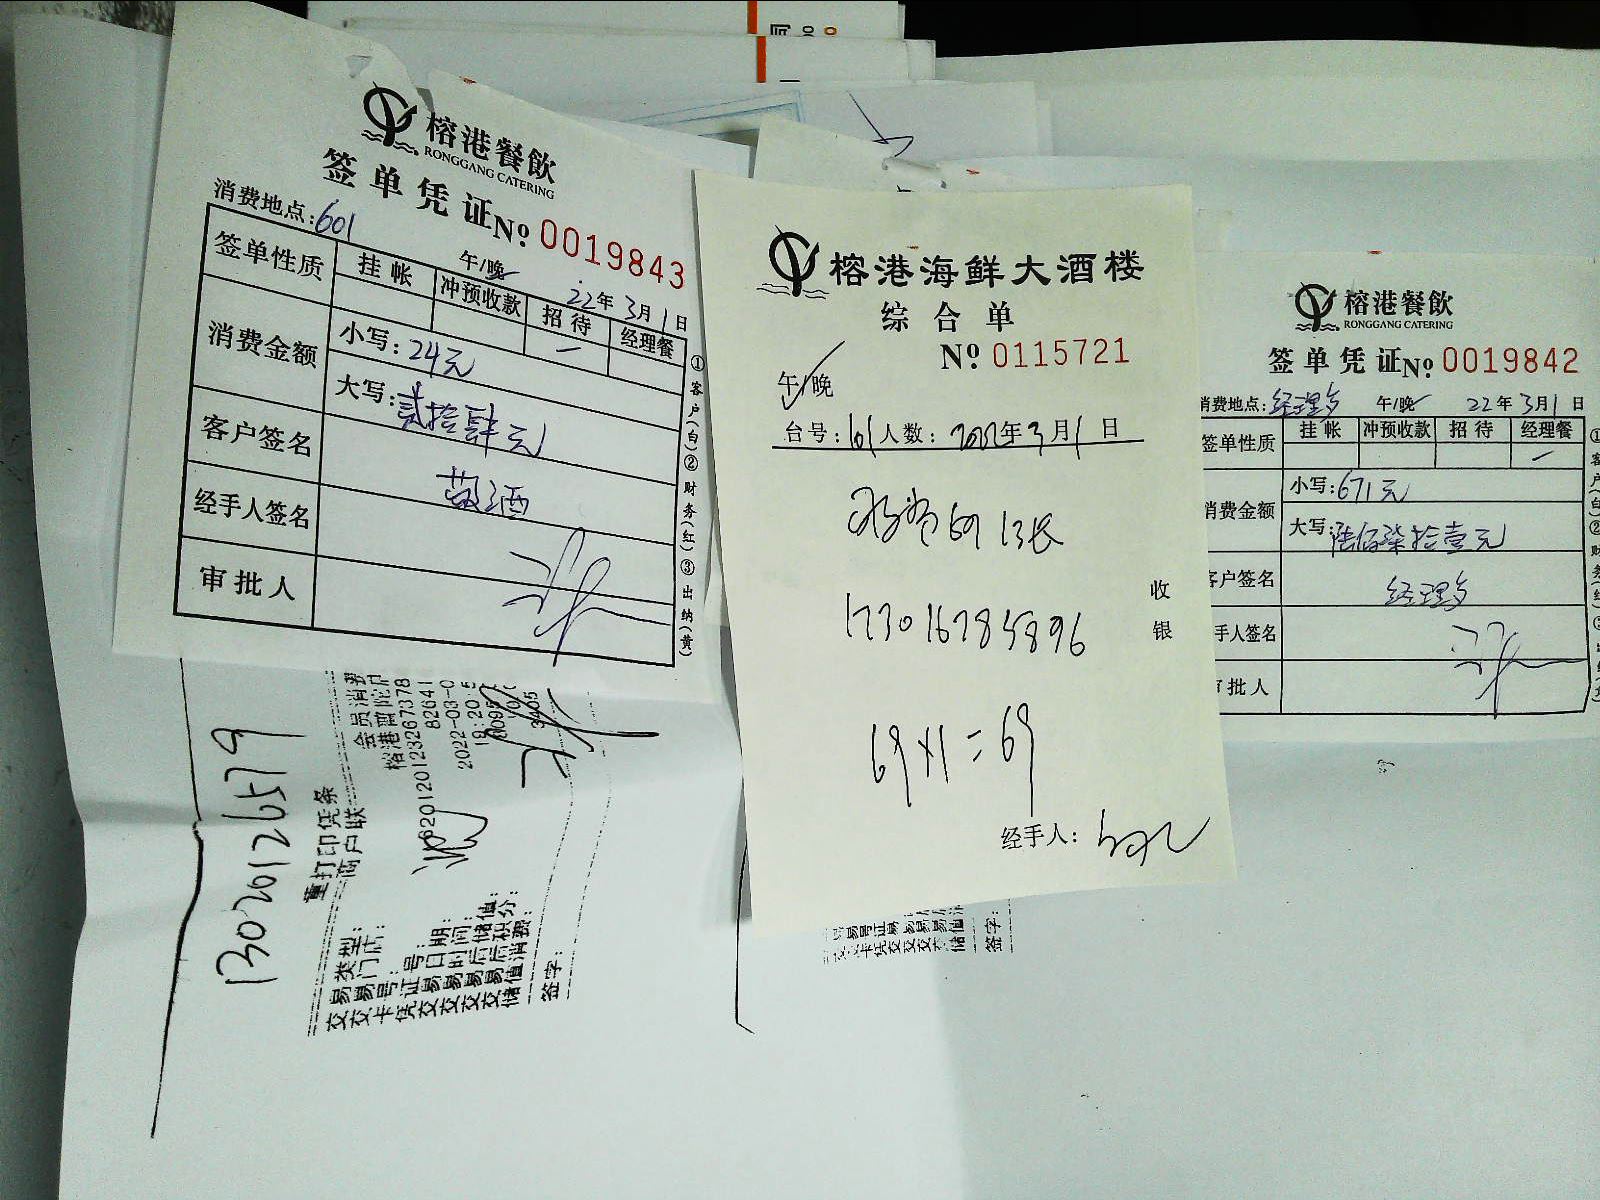 榕港餐飲
RONGGANG CATERING
签单凭证 No. 0019843
消费地点: 601 午/晚 22年3月1日
签单性质 挂帐 冲预收款 招待 经理餐
消费金额 小写: 24元
大写: 贰拾肆元
客户签名 敬酒
经手人签名
审批人
①客户(白)②财务(红)③出纳(黄)
13020126579
重打印凭条
商户联
交易类型: 会员消费
交易门店: 榕港普陀店
卡号: 6201201232267378
凭证号: 82641
交易日期: 2022-03-0
交易时间: 19:20:5
交易后储值:
交易后积分:
储值消费: 3405
签字:
榕港海鲜大酒楼
综合单
No. 0115721
午/晚
台号: 601 人数: 2022年3月1日
收银
173016785896
69×1=69
经手人:
榕港餐飲
RONGGANG CATERING
签单凭证 No. 0019842
消费地点: 经理餐 午/晚 22年3月1日
签单性质 挂帐 冲预收款 招待 经理餐
消费金额 小写: 671元
大写: 陆佰柒拾壹元
客户签名 经理餐
手人签名
审批人
签字: